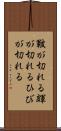 皸が切れる皹
が切れるひび
が切れる